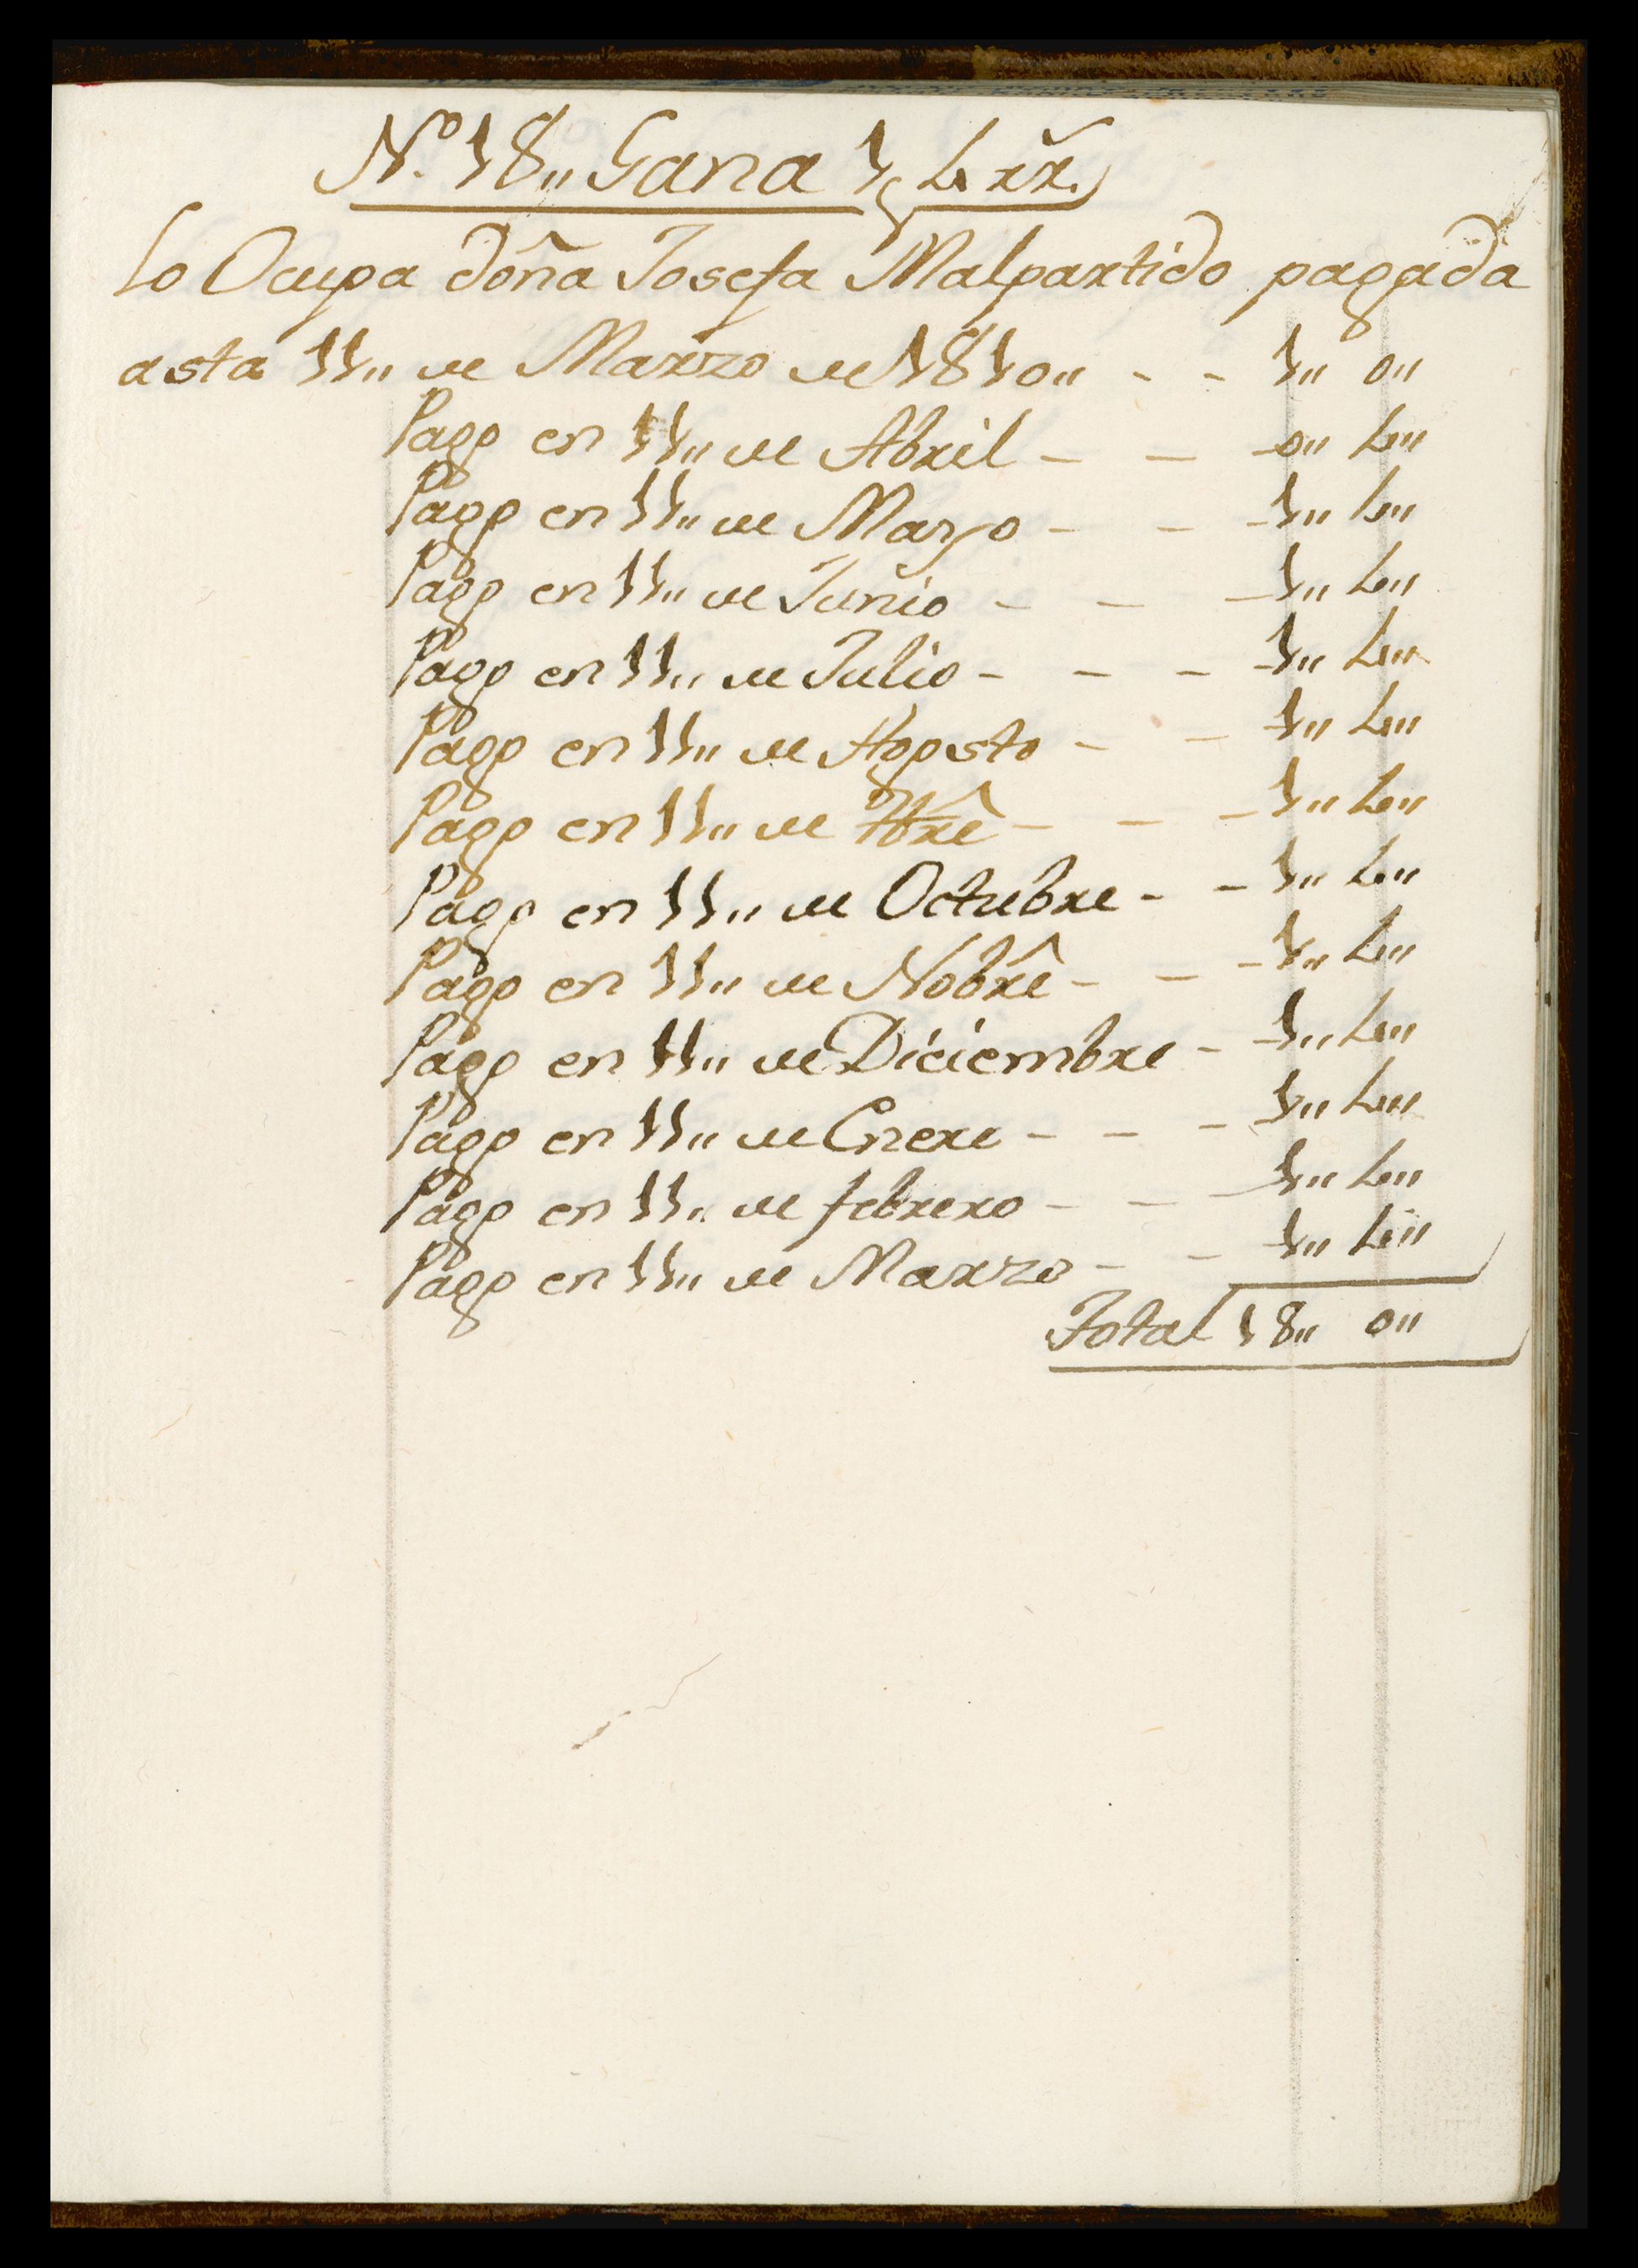 N.º 18,, Gana 1 p 4 rr.
Lo Ocupa doña Josefa Malpartido pagada
asta 11,, de Marzo de 1810,, - - 1,, 0,,
Pago en 11,, de Abril - - 0,, 4,,
Pago en 11,, de Mayo - - 1,, 4,,
Pago en 11,, de Junio - - - 1,, 4,,
Pago en 11,, de Julio - - - 1,, 4,,
Pago en 11,, de Agosto - - 1,, 4,,
Pago en 11,, de 7bre - - - 1,, 4,,
Pago en 11,, de Octubre - - 1,, 4,,
Pago en 11,, de Nobre - - - 1,, 4,,
Pago en 11,, de Diciembre - 1,, 4,,
Pago en 11,, de Enere - - - 1,, 4,,
Pago en 11,, de febrero - - - 1,, 4,,
Pago en 11,, de Marzo - - 1,, 4,,
Total 18,, 0,,